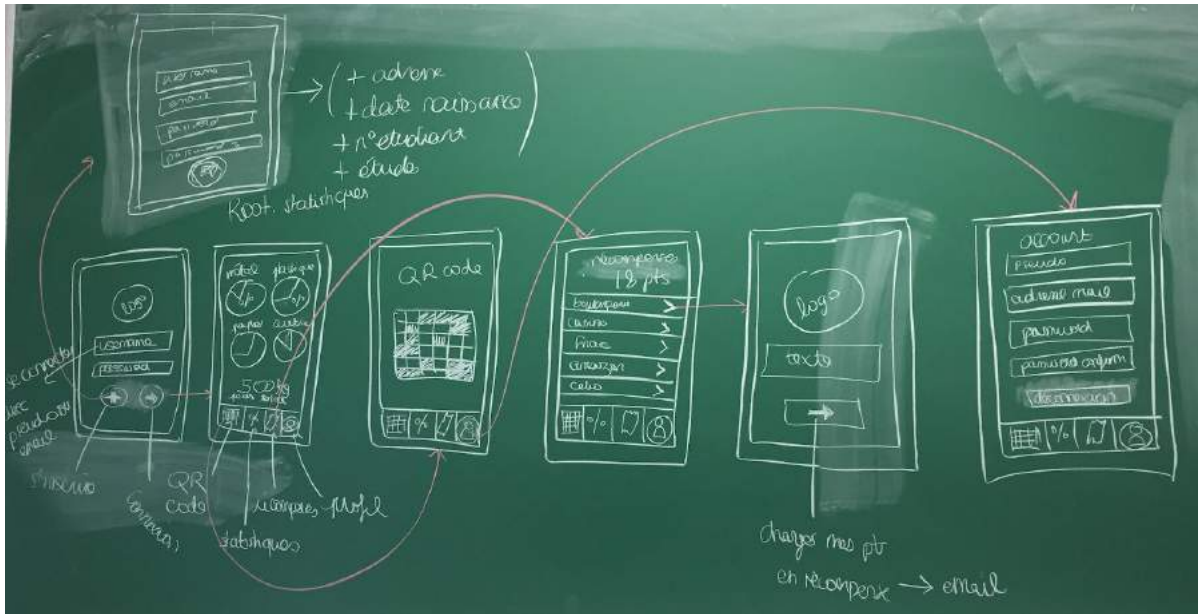 username
email
password
+ adresse
+ date naissance
+ n° etudiant
+ étude
statistiques
logo
username
password
se connecter
avec
pseudo ou
email
métal plastique
papier
500 kg
QR
code
statistiques
profil
QR code
récompense
18 pts
boulangerie
casino
fnac
amazon
% 
logo
texte
→
changer mes pt
en récompense → email
account
pseudo
adresse mail
password
password confirm
%